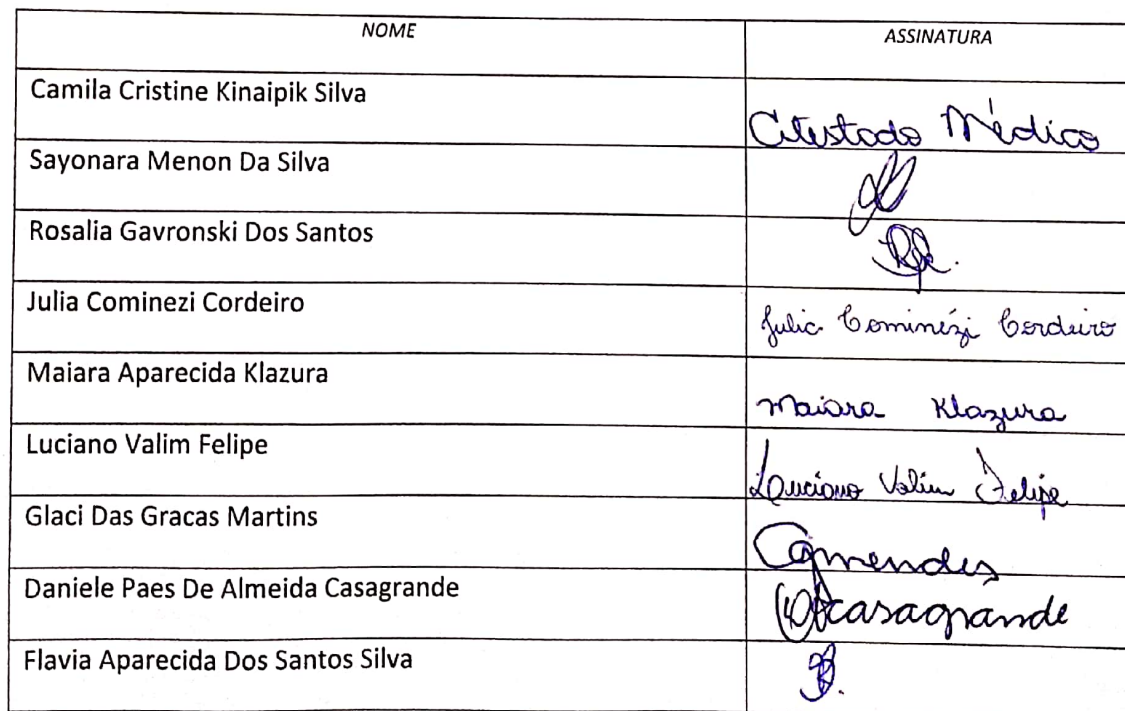 NOME ASSINATURA
Camila Cristine Kinaipik Silva Atestado Médico
Sayonara Menon Da Silva
Rosalia Gavronski Dos Santos
Julia Cominezi Cordeiro Julia Cominézi Cordeiro
Maiara Aparecida Klazura Maiara Klazura
Luciano Valim Felipe Luciano Valim Felipe
Glaci Das Gracas Martins
Daniele Paes De Almeida Casagrande casagrande
Flavia Aparecida Dos Santos Silva